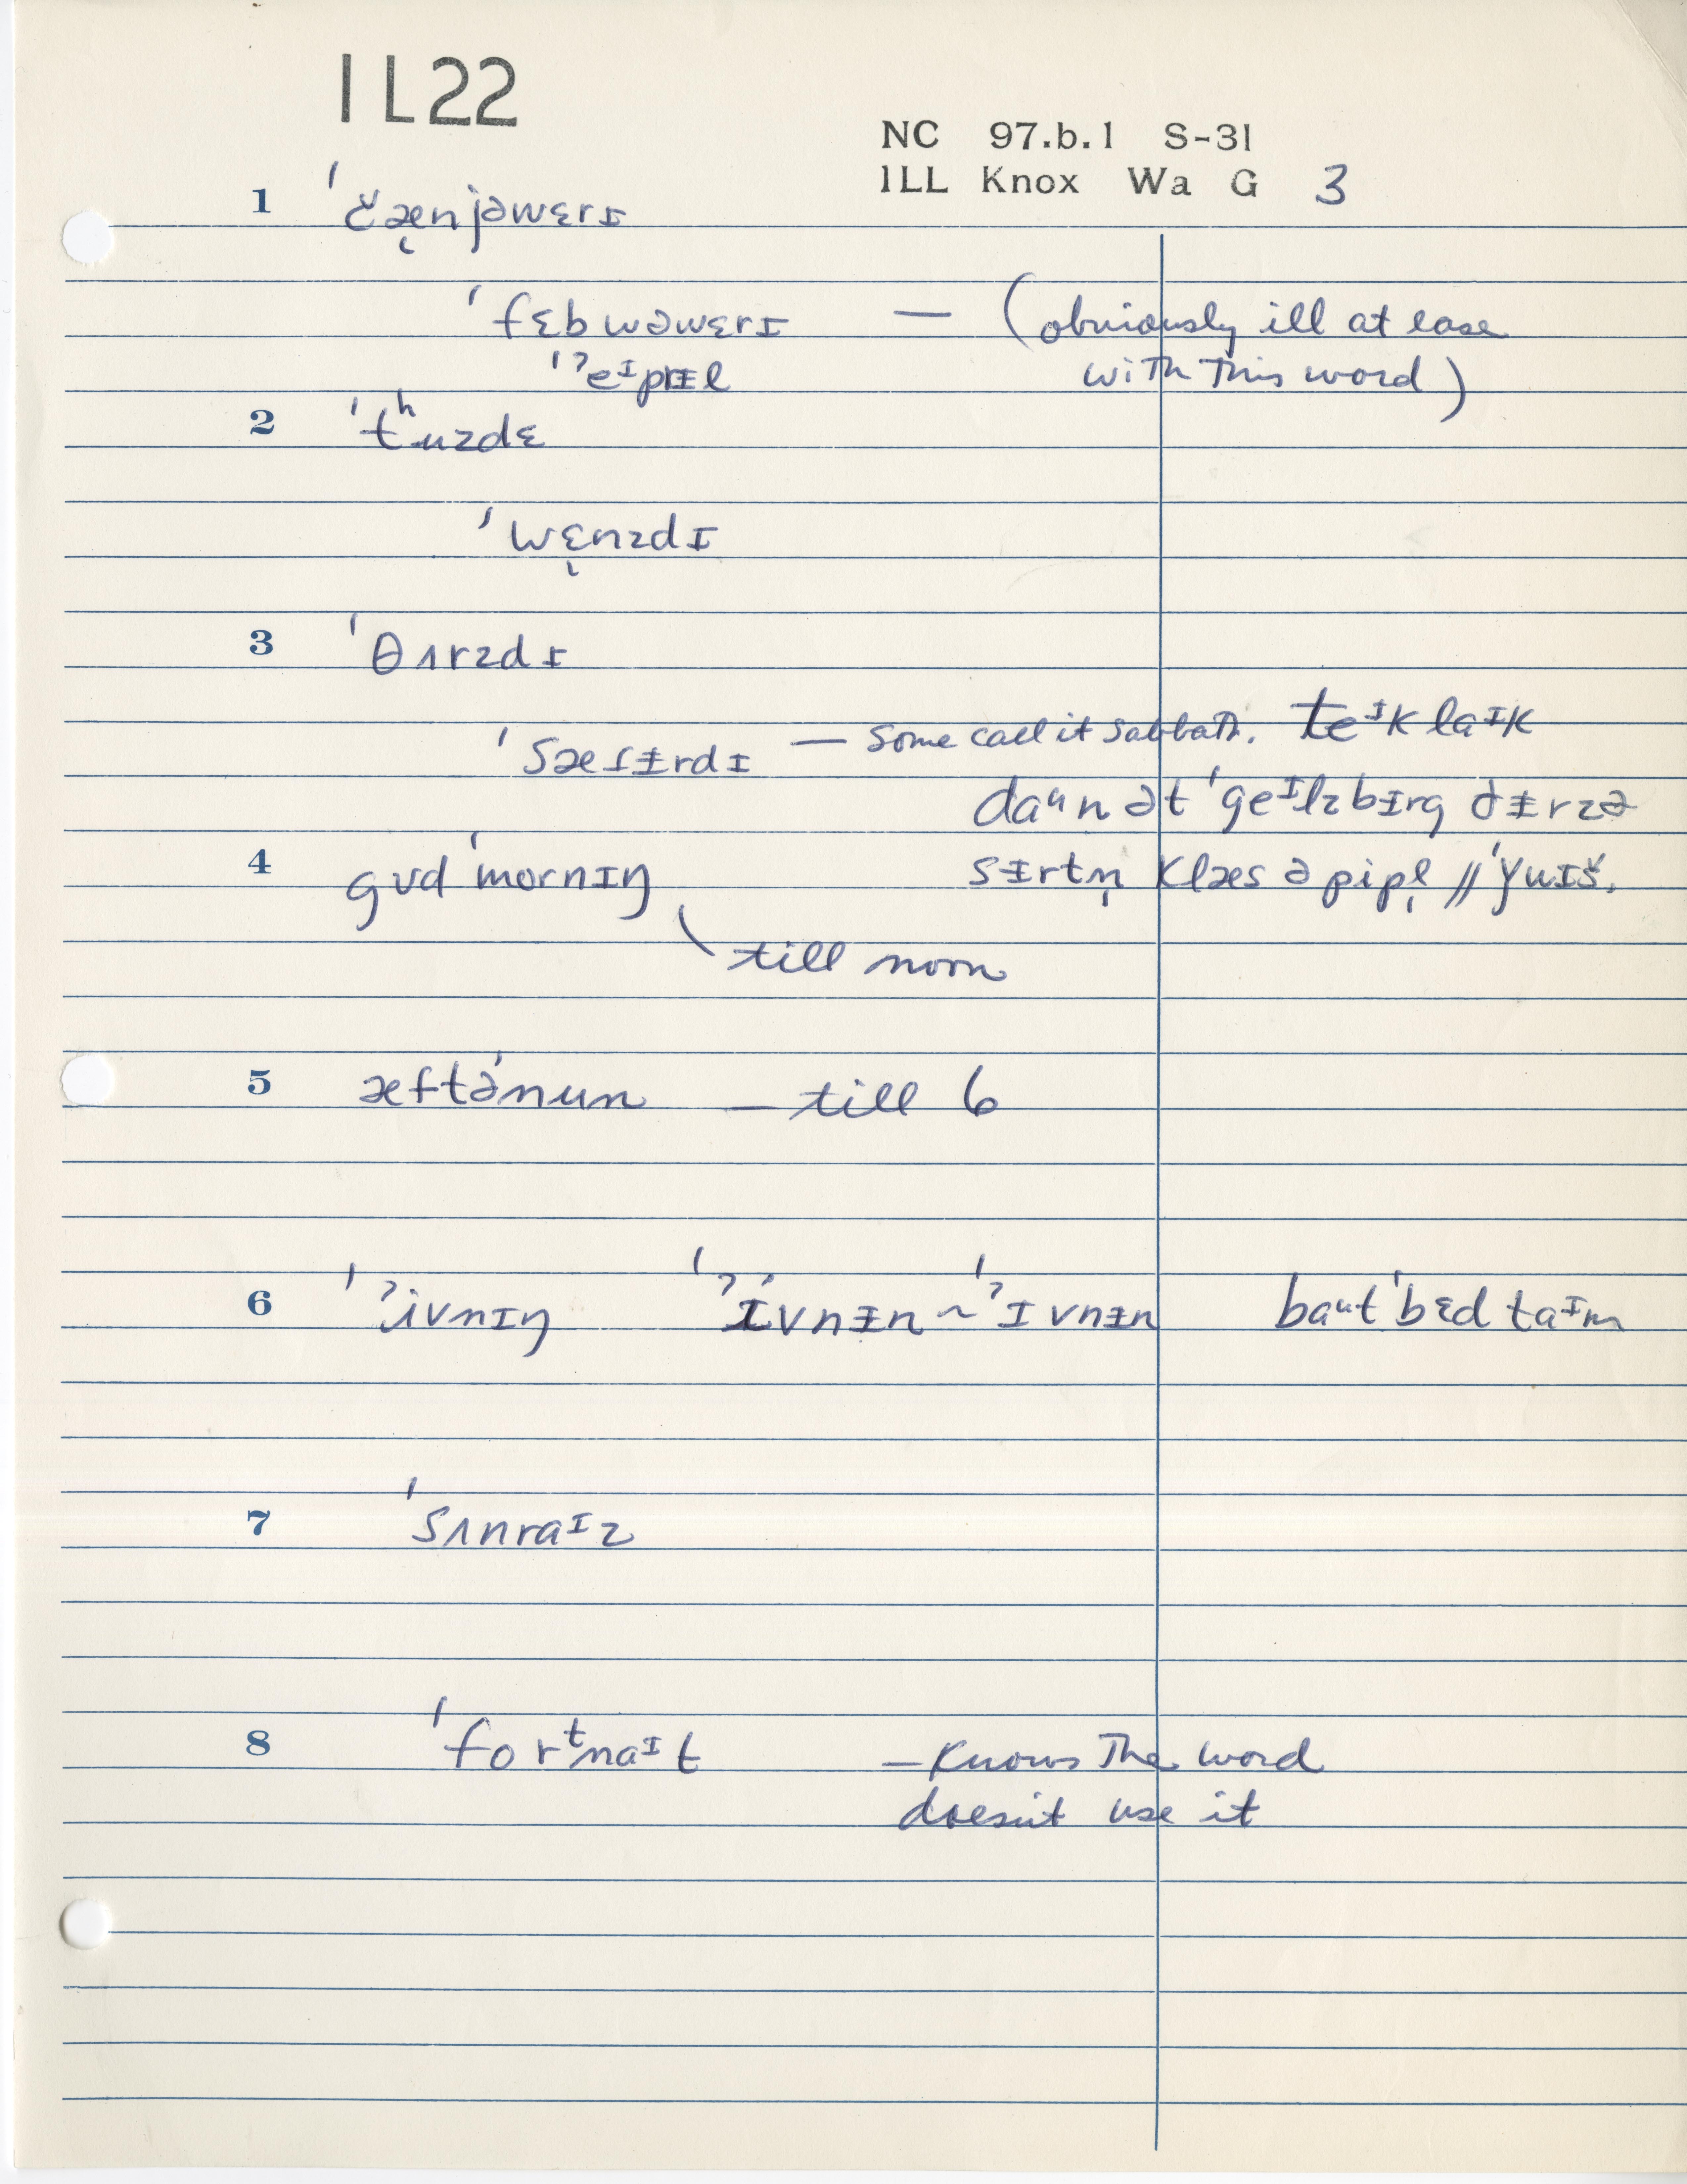 IL22
NC 97.b.1 S-31
ILL Knox Wa G 3
1 ˈǯæ̨njəwɛrɪ
ˈfɛbwəwɛrɪ — (obviously ill at ease
ˈˀeᶦprɪ̵l with this word)
2 ˈtʰuzdɛ
ˈwɛ̨nzdɪ
3 ˈθʌrzdɪ
ˈsæɾɪ̵rdɪ — Some call it Sabbath. teᶦk laᶦk
daᵘn ət ˈgeᶦlzbɪ̵rg ðɪ̵rzə
4 gʊd ˈmornɪŋ sɪ̵rtn̩ klæs ə pipl̩ // ˈǰuɪš.
till noon
5 æftəˈnun — till 6
6 ˈˀivnɪŋ ˈˀɪ́vnɪ̵n ~ ˈˀɪvnɪ̵n baᵘt ˈbɛd taᶦm
7 ˈsʌnraᶦz
8 ˈforᵗnaᶦt — Knows the word
doesn't use it